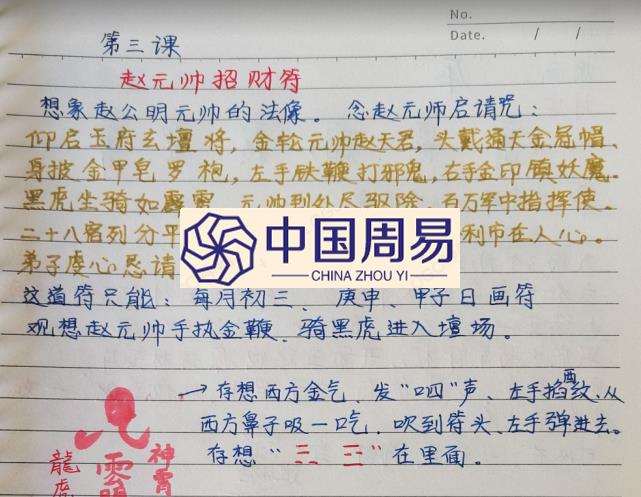 No.
Date. / /
第三课
赵元帅招财符
想象赵公明元帅的法像。念赵元师启请咒：
仰启玉府玄壇将，金轮元帅赵天君，头戴通天金冠帽、
身披金甲皂罗袍，左手铁鞭打邪鬼，右手金印镇妖魔。
黑虎坐骑如霹雳，元帅到处尽驱除，百万军中指挥使。
二十八宿列分平 利市在人心。
弟子虔心恳请
中国周易
CHINA ZHOU YI
这道符只能：每月初三、庚申、甲子日画符
观想赵元帅手执金鞭、骑黑虎进入壇场。
→存想西方金气、发“呬”声、左手掐酉纹、从
西方鼻子吸一口气，吹到符头、左手弹进去。
存想“三、三”在里面。
神霄
龍虎